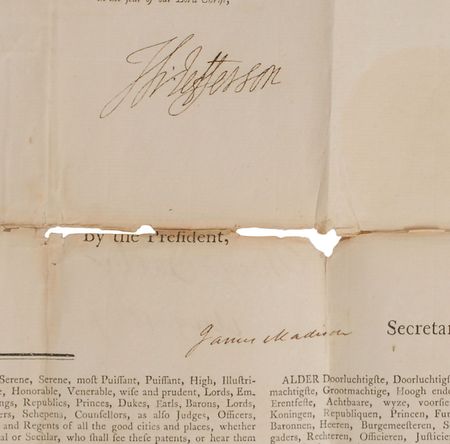 in the year of our Lord Christ,
Th: Jefferson
By the President,
James Madison
Secretar
Serene, Serene, moſt Puiſſant, Puiſſant, High, Illuſtri-
e, Honorable, Venerable, wiſe and prudent, Lords, Em-
ngs, Republics, Princes, Dukes, Earls, Barons, Lords,
ers, Schepens, Counſellors, as alſo Judges, Officers,
and Regents of all the good cities and places, whether
al or Secular, who ſhall ſee theſe patents, or hear them
ALDER Doorluchtigſte, Doorluchtig
machtigſte, Grootmachtige, Hoogh ende
Erentfeſte, Achtbaare, wyze, voorſie
Koningen, Republiquen, Princen, Fur
Baronnen, Heeren, Burgemeeſteren, S
gaders, Rechteren, Officieren, Juſticie